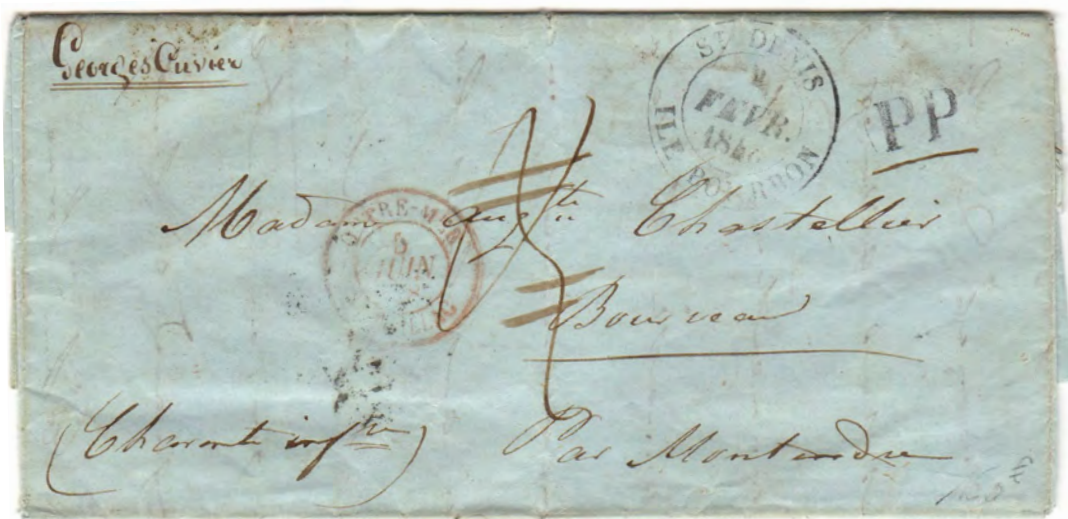 Georges Cuvier
ST DENIS
FEVR.
184
ILE BOURBON
PP
Madame Aug.te Chastellier
OUTRE-MER
5
JUIN
Par Montendre
(Charente inf.re)